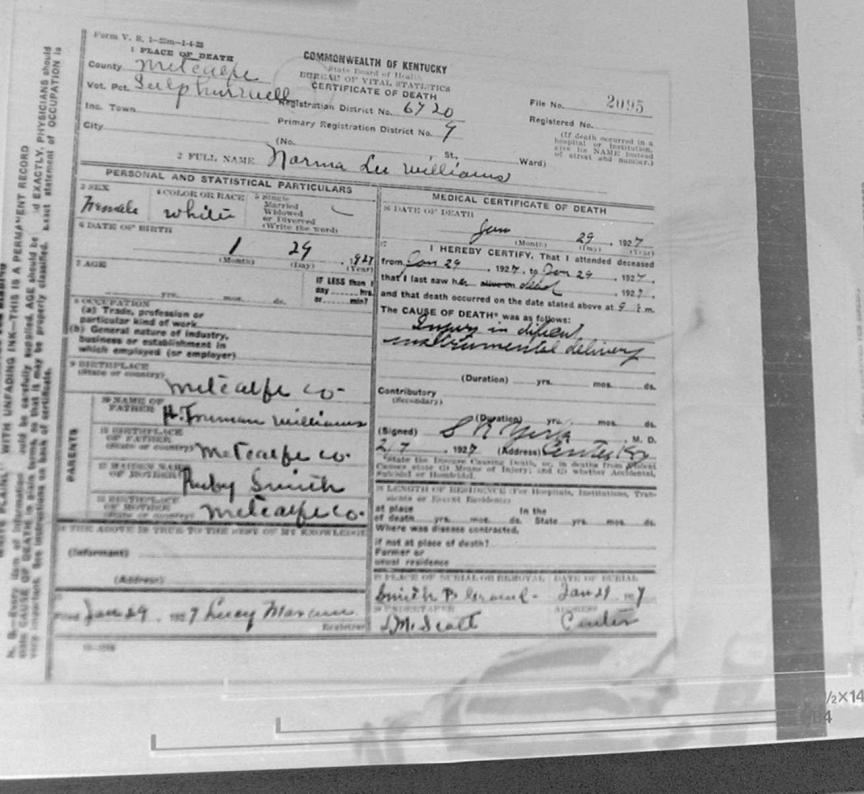 Form V. S. 1
1 PLACE OF DEATH
County Metcalfe
Vot. Pct. Sulphurwell
Inc. Town
City
COMMONWEALTH OF KENTUCKY
State Board of Health
BUREAU OF VITAL STATISTICS
CERTIFICATE OF DEATH
Registration District No. 6720
Primary Registration District No. 9
(No. St., Ward)
File No. 2095
Registered No.
(If death occurred in a
hospital or institution,
give its NAME instead
of street and number.)
2 FULL NAME Norma Lee Williams
PERSONAL AND STATISTICAL PARTICULARS
3 SEX
Female
4 COLOR OR RACE
white
5 Single
Married
Widowed
or Divorced
(Write the word)
6 DATE OF BIRTH
1 29 , 1927
(Month) (Day) (Year)
7 AGE
yrs. mos. ds.
IF LESS than 1
day hrs.
or min?
8 OCCUPATION
(a) Trade, profession or
particular kind of work
(b) General nature of industry,
business or establishment in
which employed (or employer)
9 BIRTHPLACE
(State or country) Metcalfe Co.
PARENTS
10 NAME OF
FATHER H. Truman Williams
11 BIRTHPLACE
OF FATHER
(State or country) Metcalfe Co.
12 MAIDEN NAME
OF MOTHER Ruby Smith
13 BIRTHPLACE
OF MOTHER
(State or country) Metcalfe Co.
14 THE ABOVE IS TRUE TO THE BEST OF MY KNOWLEDGE
(Informant)
(Address)
Filed Jan 29 , 1927 Lucy
Registrar
MEDICAL CERTIFICATE OF DEATH
16 DATE OF DEATH
Jan 29 , 1927
(Month) (Day) (Year)
17 I HEREBY CERTIFY, That I attended deceased
from Jan 29 , 1927, to Jan 29 , 1927,
that I last saw her alive on dead , 1927,
and that death occurred on the date stated above at 9 m.
The CAUSE OF DEATH* was as follows:
Injury in
instrumental delivery
(Duration) yrs. mos. ds.
Contributory
(Secondary)
(Duration) yrs. mos. ds.
(Signed) S R York , M. D.
2/7 , 1927 (Address) Center Ky
*State the Disease Causing Death, or, in deaths from Violent
Causes state (1) Means of Injury; and (2) whether Accidental,
Suicidal or Homicidal.
18 LENGTH OF RESIDENCE (For Hospitals, Institutions, Tran-
sients or Recent Residents)
at place In the
of death yrs. mos. ds. State yrs. mos. ds.
Where was disease contracted,
if not at place of death?
Former or
usual residence
19 PLACE OF BURIAL OR REMOVAL DATE OF BURIAL
Smith B Ground Jan 29 1927
20 UNDERTAKER ADDRESS
Scott Center